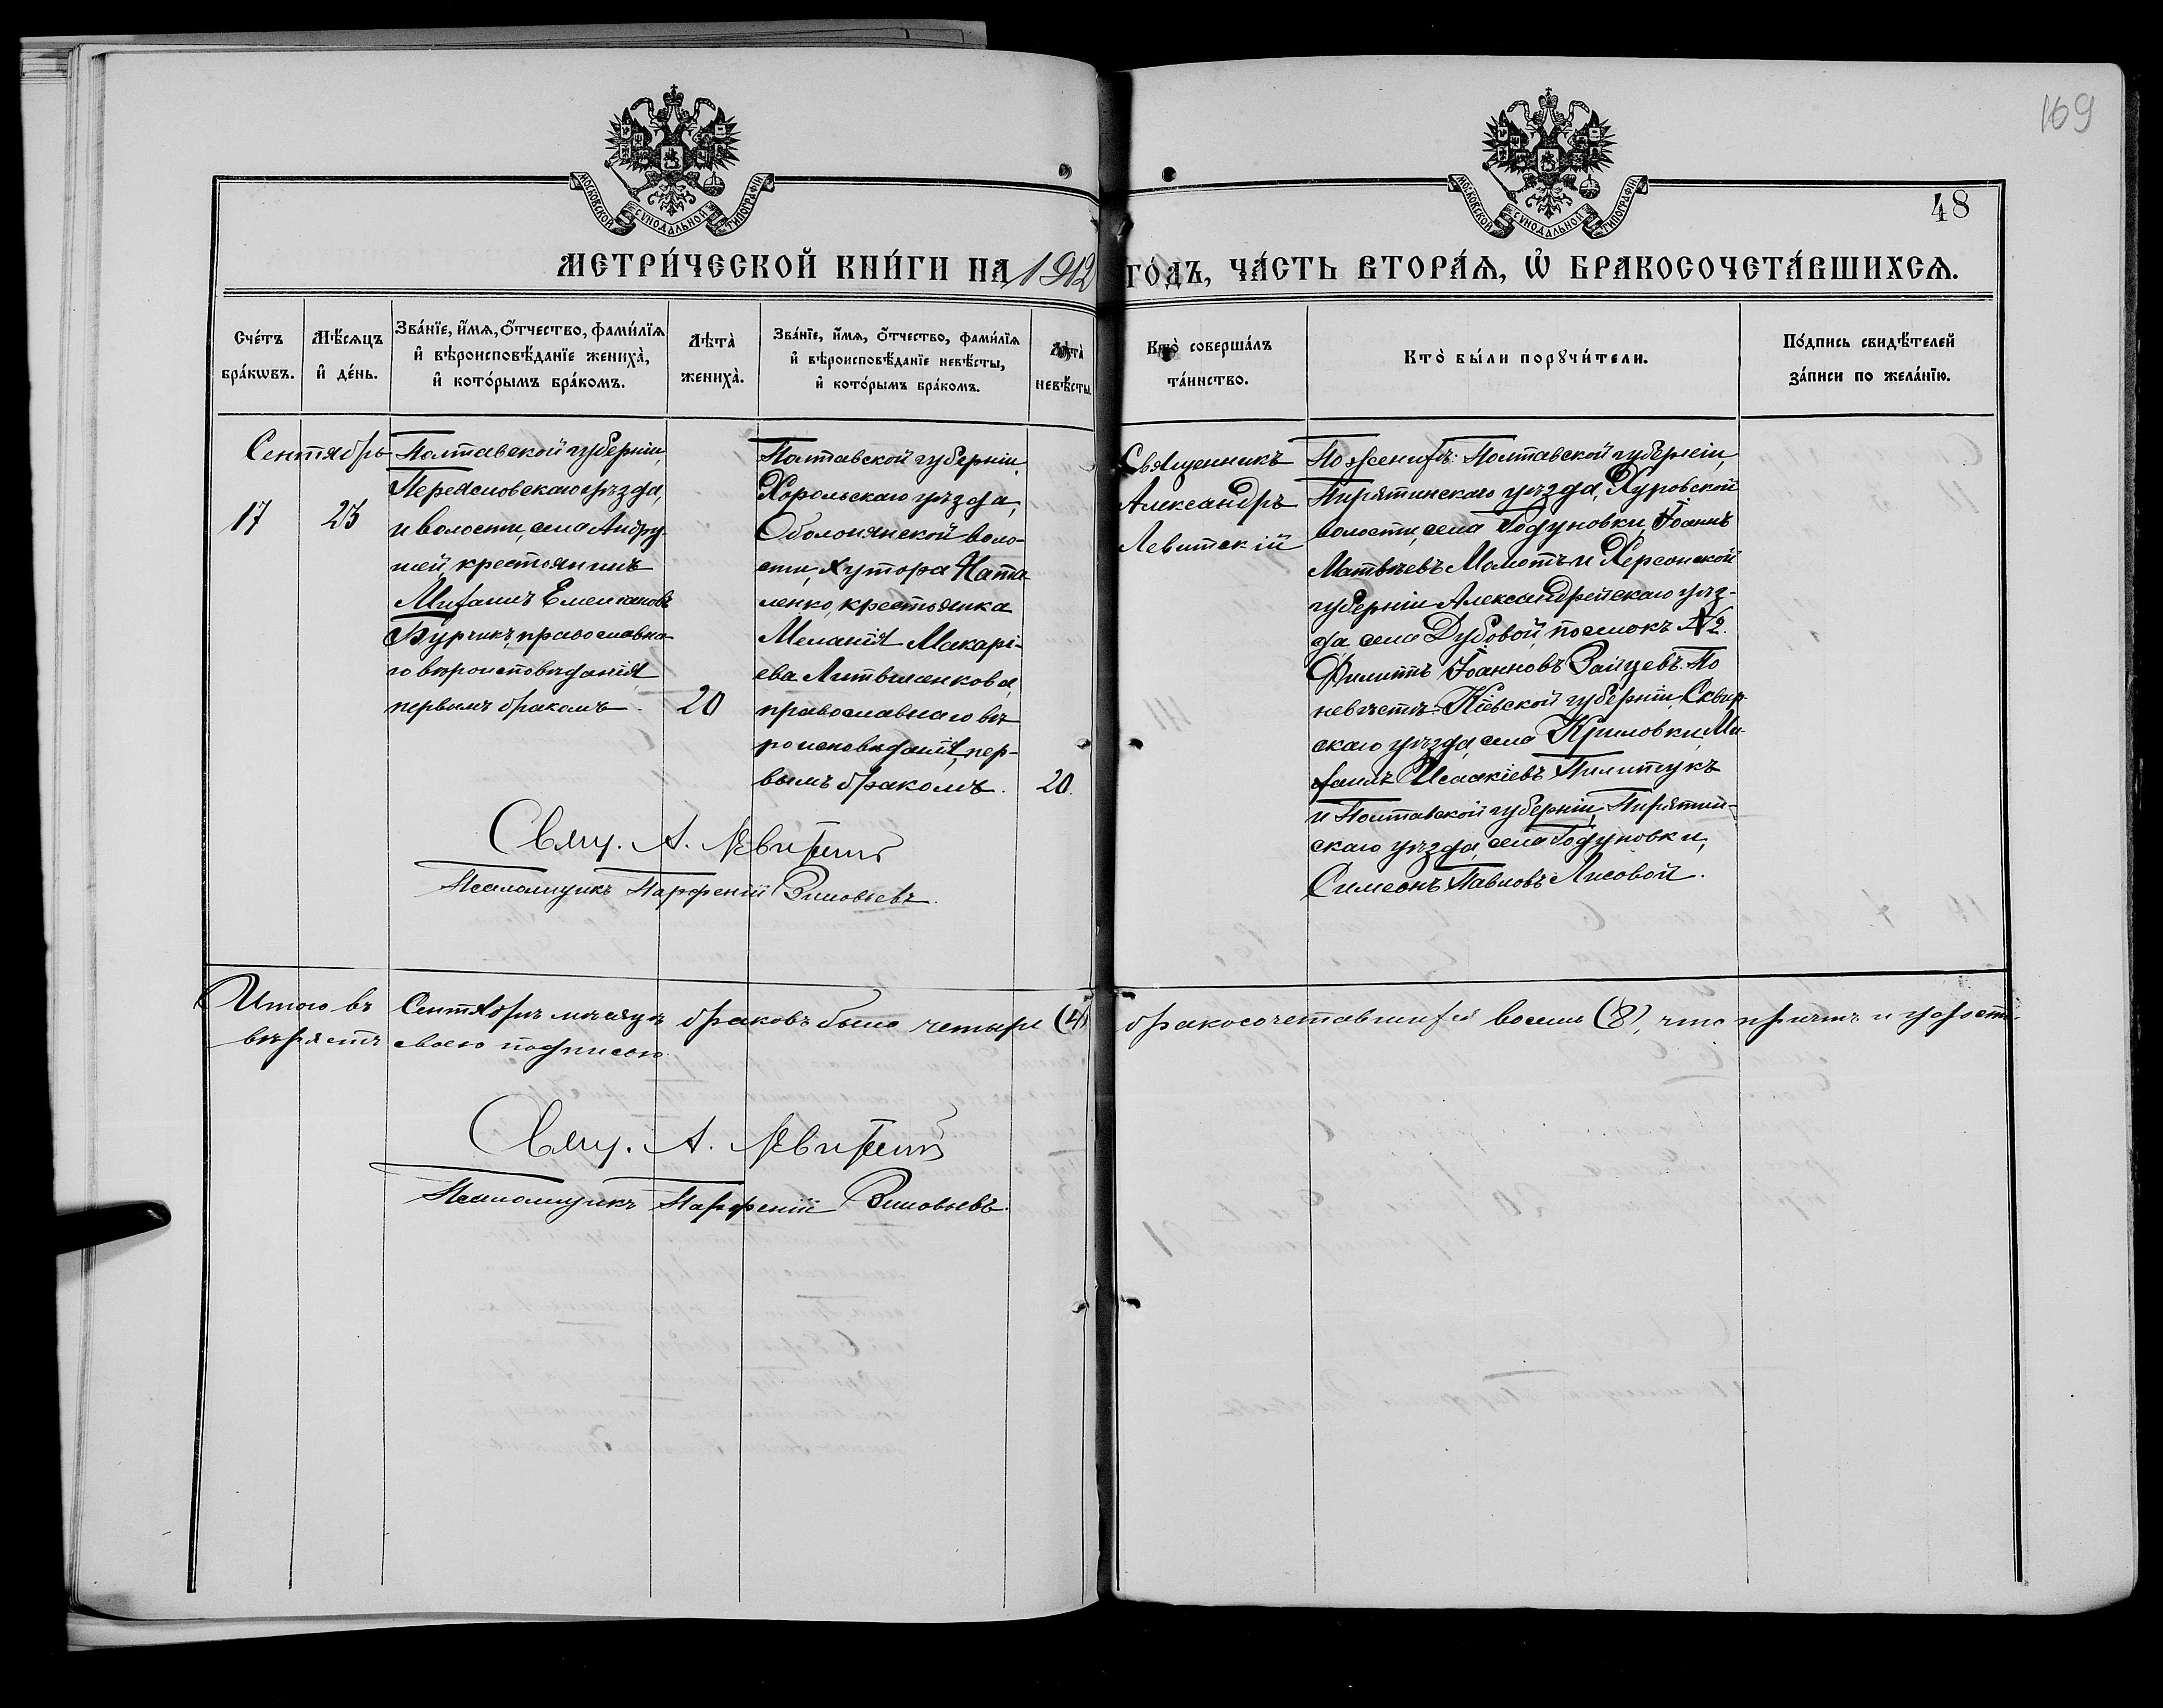 169
МОСКОВСКОЙ СѴНОДАЛЬНОЙ ТИПОГРАФІИ
МОСКОВСКОЙ СѴНОДАЛЬНОЙ ТИПОГРАФІИ
48
МЕТРИ́ЧЕСКОЙ КНИ́ГИ НА 1912 ГО́ДЪ, ЧА́СТЬ ВТОРА́Ѧ, Ѡ҆ БРАКОСОЧЕТА́ВШИХСѦ.
Сче́тъ
бра́кѡвъ.
Мѣ́сѧцъ
и҆ де́нь.
Зва́нїе, и҆́мѧ, ѻ҆́тчество, фами́лїѧ
и҆ вѣроисповѣ́данїе жениха̀,
и҆ кото́рымъ бра́комъ.
Лѣта̀
жениха̀.
Зва́нїе, и҆́мѧ, ѻ҆́тчество, фами́лїѧ
и҆ вѣроисповѣ́данїе невѣ́сты,
и҆ кото́рымъ бра́комъ.
Лѣта̀
невѣ́сты.
Кто̀ соверша́лъ
та́инство.
Кто̀ бы́ли порꙋчи́тели.
По́дпись свидѣ́телей
за́писи по жела́нїю.
Сентябрь
17
23
Полтавской губерніи,
Переяславскаго уѣзда,
и волости, села Андру
шей крестьянинъ
Михаилъ Емеліановъ
Бурчикъ, православна
го вѣроисповѣданія,
первымъ бракомъ.
20
Полтавской губерніи,
Хорольскаго уѣзда,
Оболонянской воло-
сти, хутора
ленко, крестьянка
Меланія Макарі-
ева Литвиненкова,
православнаго вѣ
роисповѣданія, пер-
вымъ бракомъ.
20.
Священникъ
Александръ
Левитскій
По женихѣ: Полтавской губерніи,
Пирятинскаго уѣзда, Яуровской
волости, села Годуновки, Іоаннъ
Матвѣевъ Молотъ и Херсонской
губерніи Александрійскаго уѣз-
да, села Дубовой, поселокъ №2.
Филиппъ Іоанновъ Зайцевъ. По
невѣстѣ: Кіевской губерніи, Сквир-
скаго уѣзда, села Криловки, Ми-
хаилъ Исаакіевъ Пилипчукъ
и Полтавской губерніи, Пирятин-
скаго уѣзда, села Годуновки,
Симеонъ Павловъ Лисовой.
Свящ. А. Левитскій
Псаломщикъ Парфеній Зиновьевъ.
Итого въ Сентябрѣ мѣсяцѣ браковъ было четыре (4) бракосочетавшихся восемь (8), что причтъ и удосто-
вѣряетъ своею подписью.
Свящ. А. Левитскій
Псаломщикъ Парфеній Зиновьевъ.